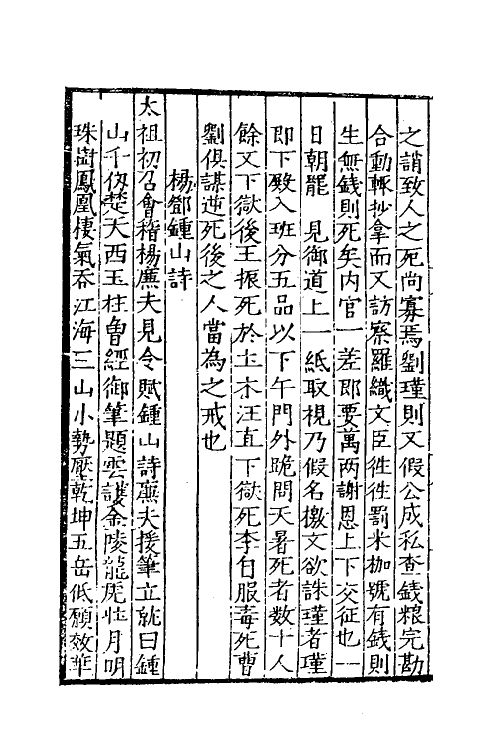 之誚致人之死尚寡焉劉瑾則又假公成私查錢粮完勘
合動輒抄拿而又訪察羅織文臣徃徃罰米枷號有錢則
生無錢則死矣内官一差即要萬两謝恩上下交征也一
日朝罷　見御道上一紙取視乃假名檄文欲誅瑾者瑾
即下殿入班分五品以下午門外跪問天暑死者数十人
餘又下獄後王振死於土木汪直下獄死李白服毒死曹
劉俱謀逆死後之人當為之戒也
楊鄧鍾山詩
太祖初召會稽楊廉夫見令賦鍾山詩廉夫援筆立就曰鍾
山千仞楚天西玉柱曽經御筆題雲護金陵龍虎壮月明
珠樹鳳凰棲氣吞江海三山小勢壓乾坤五岳低願效華